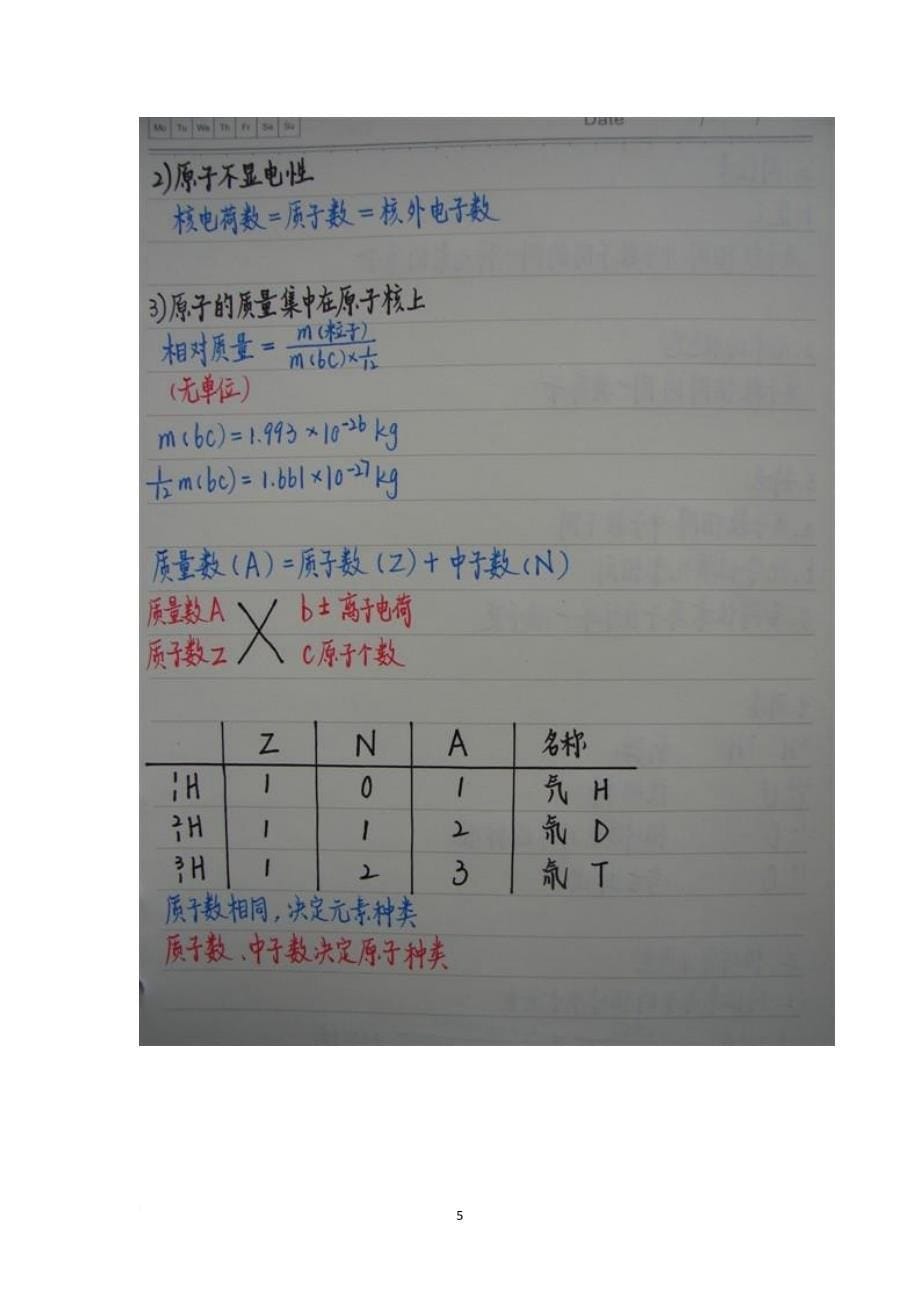 Mo Tu We Th Fr Sa Su
Date / /
2)原子不显电性
核电荷数=质子数=核外电子数
3)原子的质量集中在原子核上
相对质量 = m(粒子) / m(6C)×1/12
(无单位)
m(6C)=1.993×10⁻²⁶kg
1/12 m(6C)=1.661×10⁻²⁷kg
质量数(A)=质子数(Z)+中子数(N)
质量数A b± 离子电荷
质子数Z C原子个数
Z N A 名称
¹₁H 1 0 1 氕 H
²₁H 1 1 2 氘 D
³₁H 1 2 3 氚 T
质子数相同,决定元素种类
质子数、中子数决定原子种类
5